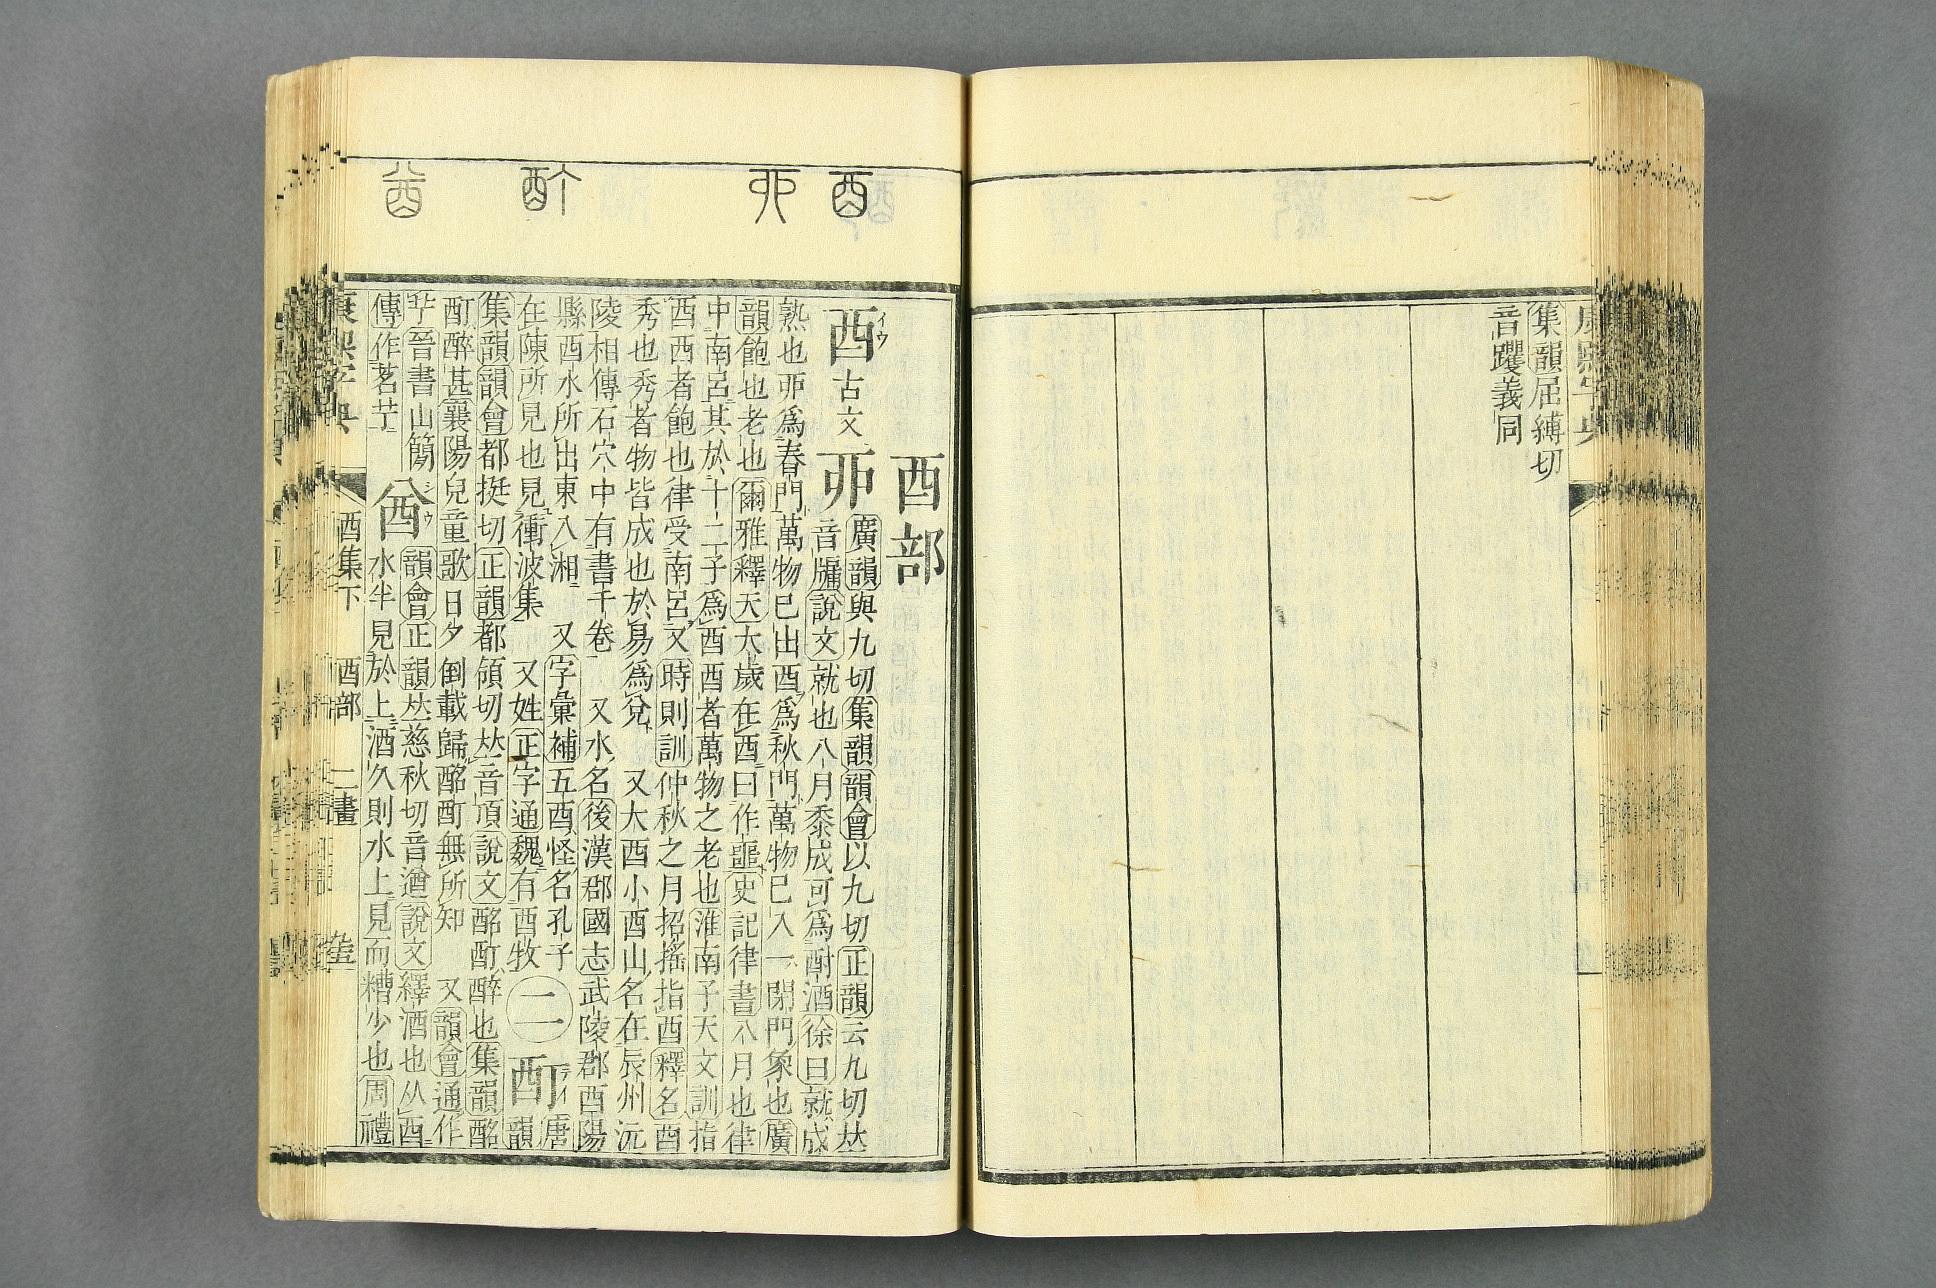 康熙字典
集韻屈縛切
音躩義同
酉丣酊酋
酉部
酉イウ古文丣廣韻與九切集韻韻會以九切正韻云九切𠀤
音牖說文就也八月黍成可爲酎酒徐曰就成
熟也丣爲春門萬物已出酉爲秋門萬物已入一閉門象也廣
韻飽也老也爾雅釋天大歲在酉曰作噩史記律書八月也律
中南呂其於十二子爲酉酉者萬物之老也淮南子天文訓指
酉酉者飽也律受南呂又時則訓仲秋之月招搖指酉釋名酉
秀也秀者物皆成也於易爲兌又大酉小酉山名在辰州沅
陵相傳石穴中有書千卷又水名後漢郡國志武陵郡酉陽
縣酉水所出東入湘又字彙補五酉怪名孔子
在陳所見也見衝波集又姓正字通魏有酉牧
二
酊テイ唐
韻
集韻韻會都挺切正韻都領切𠀤音頂說文酩酊醉也集韻酩
酊醉甚襄陽兒童歌日夕倒載歸酩酊無所知又韻會通作
艼晉書山簡
傳作茗艼
酋シウ韻會正韻𠀤慈秋切音遒說文繹酒也从酉
水半見於上酒久則水上見而糟少也周禮
康熙字典
酉集下
酉部
二畫